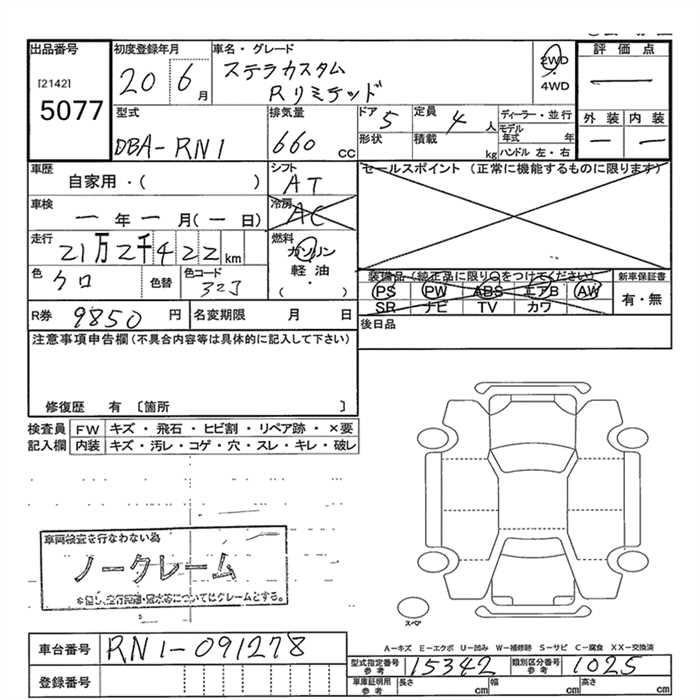 出品番号
[2142]
5077
初度登録年月
20 6月
車名・グレード
ステラカスタム
Rリミテッド
2WD
・
4WD
評価点
―
外装 内装
― ―
型式
DBA-RN1
排気量
660 CC
ドア 5
形状
定員 4 人
積載 kg
ディーラー・並行
モデル年式 年
ハンドル 左・右
車歴
自家用・( )
シフト
AT
セールスポイント (正常に機能するものに限ります)
車検
― 年 ― 月(― 日)
冷房
AC
走行
21万2千422km
燃料
ガソリン
軽油
・
( )
色
クロ
色替
色コード
32J
装備品(純正品に限り○をつけてください)
PS PW ABS エアB AW
SR ナビ TV カワ
新車保証書
有・無
R券 9850 円
名変期限 月 日
後日品
注意事項申告欄(不具合内容等は具体的に記入して下さい)
修復歴 有 〔箇所 〕
検査員 FW キズ・飛石・ヒビ割・リペア跡・×要
記入欄 内装 キズ・汚レ・コゲ・穴・スレ・キレ・破レ
車両検査を行なわない為
ノークレーム
スペア
A-キズ E-エクボ U-凹み W-補修跡 S-サビ C-腐食 XX-交換済
車台番号 RN1-091278
登録番号
型式指定番号 参考 15342
類別区分番号 参考 1025
車庫証明用 参考 長さ cm 幅 cm 高さ cm